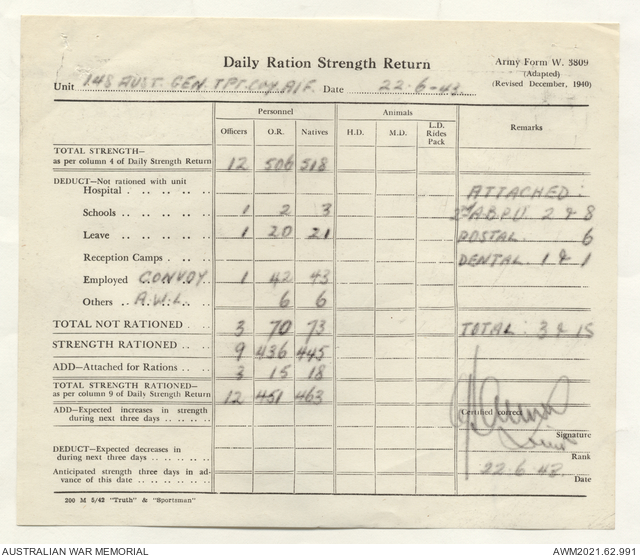 Daily Ration Strength Return
Army Form W. 3809
(Adapted)
(Revised December, 1940)
Unit 148 AUST. GEN. TPT. COY. AIF. Date 22-6-43.
Personnel Animals
Officers O.R. Natives H.D. M.D. L.D. Rides Pack Remarks
TOTAL STRENGTH—
as per column 4 of Daily Strength Return 12 506 518
DEDUCT—Not rationed with unit
Hospital ATTACHED:
Schools 1 2 3 2nd A.B.P.U. 2 & 8
Leave 1 20 21 POSTAL. 6
Reception Camps DENTAL 1 & 1
Employed CONVOY 1 42 43
Others A.W.L. 6 6
TOTAL NOT RATIONED 3 70 73 TOTAL: 3 & 15
STRENGTH RATIONED 9 436 445
ADD—Attached for Rations 3 15 18
TOTAL STRENGTH RATIONED—
as per column 9 of Daily Strength Return 12 451 463
ADD—Expected increases in strength
during next three days
Certified correct
Signature
DEDUCT—Expected decreases in
during next three days
Rank
Anticipated strength three days in ad-
vance of this date
22.6.43.
Date
200 M 5/42 "Truth" & "Sportsman"
AUSTRALIAN WAR MEMORIAL AWM2021.62.991